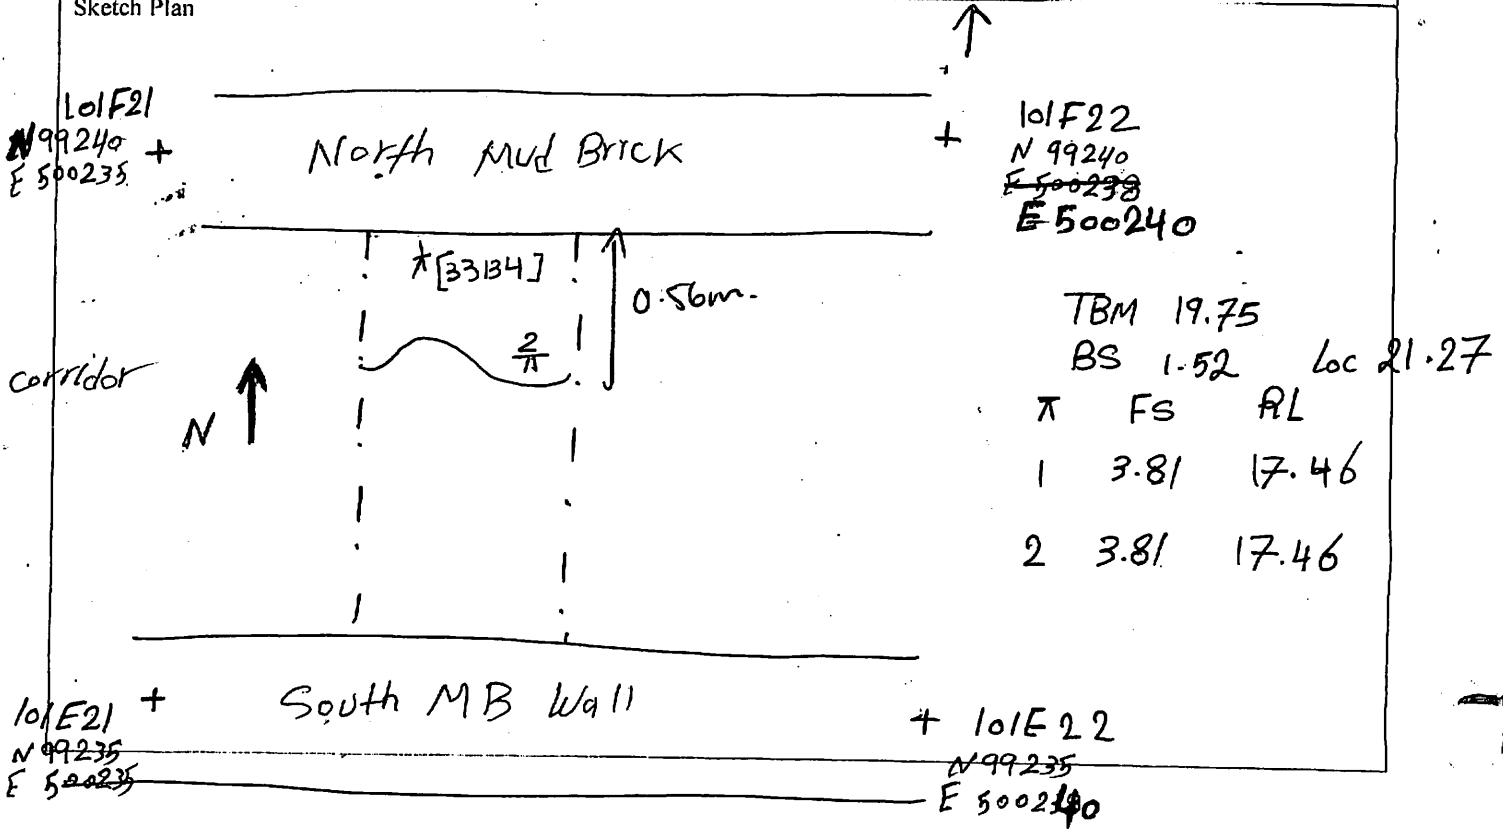 Sketch Plan
101F21
N 99240
E 500235
North Mud Brick
101F22
N 99240
E 500238
E 500240
[33134]
0.56m.
2
corridor
N
TBM 19.75
BS 1.52 Loc 21.27
⊼ FS RL
1 3.81 17.46
2 3.81 17.46
South MB Wall
101E21
N 99235
E 500235
101E22
N 99235
E 500240